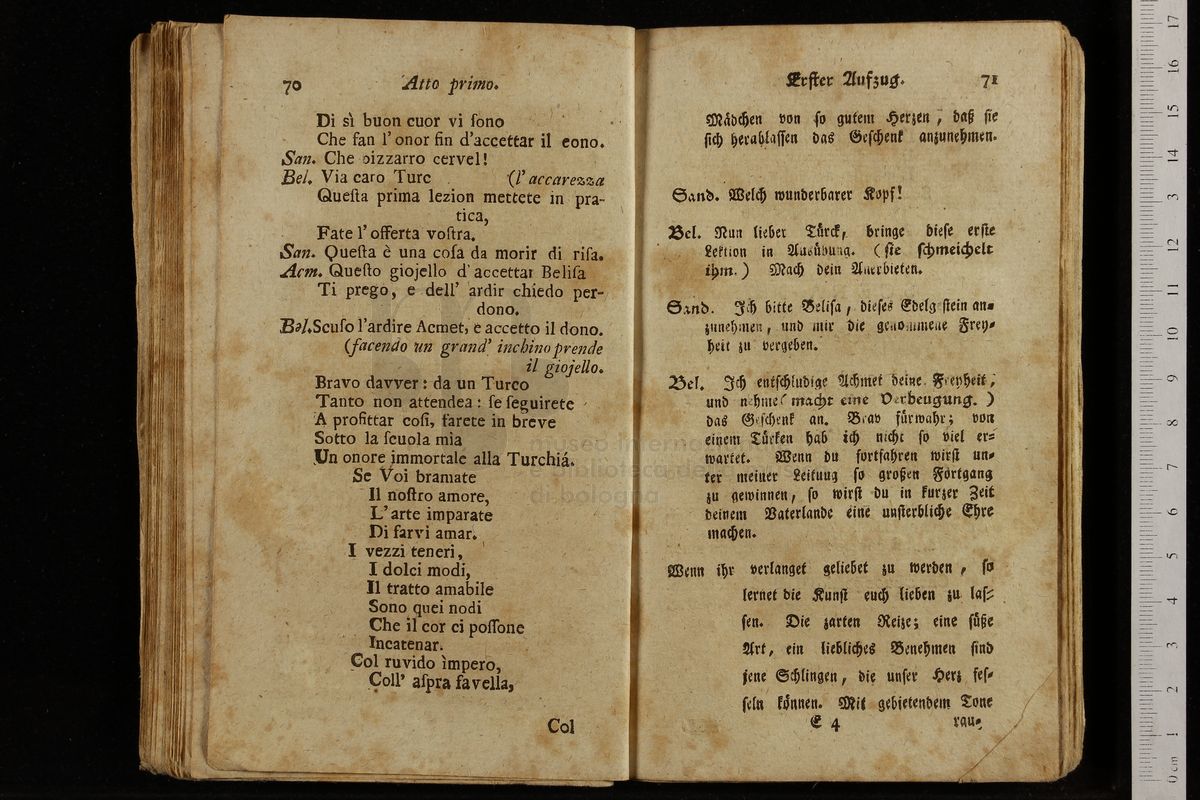 70 Atto primo.
Di sì buon cuor vi ſono
Che fan l'onor fin d'accettar il eono.
San. Che bizzarro cervel!
Bel. Via caro Turc (l'accarezza
Queſta prima lezion mettete in pra-
tica,
Fate l'offerta voſtra.
San. Queſta è una coſa da morir di riſa.
Acm. Queſto giojello d'accettar Beliſa
Ti prego, e dell' ardir chiedo per-
dono.
Bel. Scuſo l'ardire Acmet, e accetto il dono.
(facendo un grand' inchino prende
il giojello.
Bravo davver: da un Turco
Tanto non attendea: ſe ſeguirete
A profittar coſi, farete in breve
Sotto la ſcuola mìa
Un onore immortale alla Turchiá.
Se Voi bramate
Il noſtro amore,
L'arte imparate
Di farvi amar.
I vezzi teneri,
I dolci modi,
Il tratto amabile
Sono quei nodi
Che il cor ci poſſone
Incatenar.
Col ruvido ìmpero,
Coll' aſpra favella,
Col
Erſter Aufzug. 71
Mädchen von ſo gutem Herzen, daß ſie
ſich herablaſſen das Geſchenk anzunehmen.
Sand. Welch wunderbarer Kopf!
Bel. Nun lieber Türck, bringe dieſe erſte
Lektion in Ausübung. (ſie ſchmeichelt
ihm.) Mach dein Anerbieten.
Sand. Ich bitte Beliſa, dieſes Edelgeſtein an-
zunehmen, und mir die genommene Frey-
heit zu vergeben.
Bel. Ich entſchludige Achmet deine Freyheit,
und nehme (macht eine Verbeugung.)
das Geſchenk an. Brav fürwahr; von
einem Türken hab ich nicht ſo viel er-
wartet. Wenn du fortfahren wirſt un-
ter meiner Leituug ſo großen Fortgang
zu gewinnen, ſo wirſt du in kurzer Zeit
deinem Vaterlande eine unſterbliche Ehre
machen.
Wenn ihr verlanget geliebet zu werden, ſo
lernet die Kunſt euch lieben zu laſ-
ſen. Die zarten Reize; eine ſüße
Art, ein liebliches Benehmen ſind
jene Schlingen, die unſer Herz feſ-
ſeln können. Mit gebietendem Tone
E 4 rau-
museo internazionale
e biblioteca de
di bologna